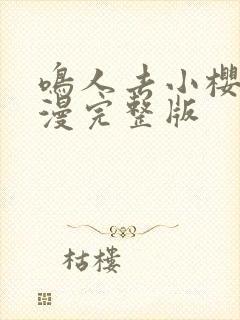 鳴人去小櫻
漫完整版
枯樓